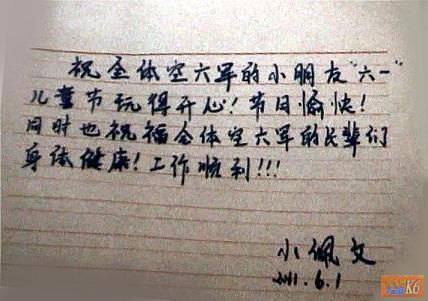 祝全体空六军的小朋友“六一”
儿童节玩得开心！节日愉快！
同时也祝福全体空六军的长辈们
身体健康！工作顺利！！！
小佩文
2011.6.1
K6